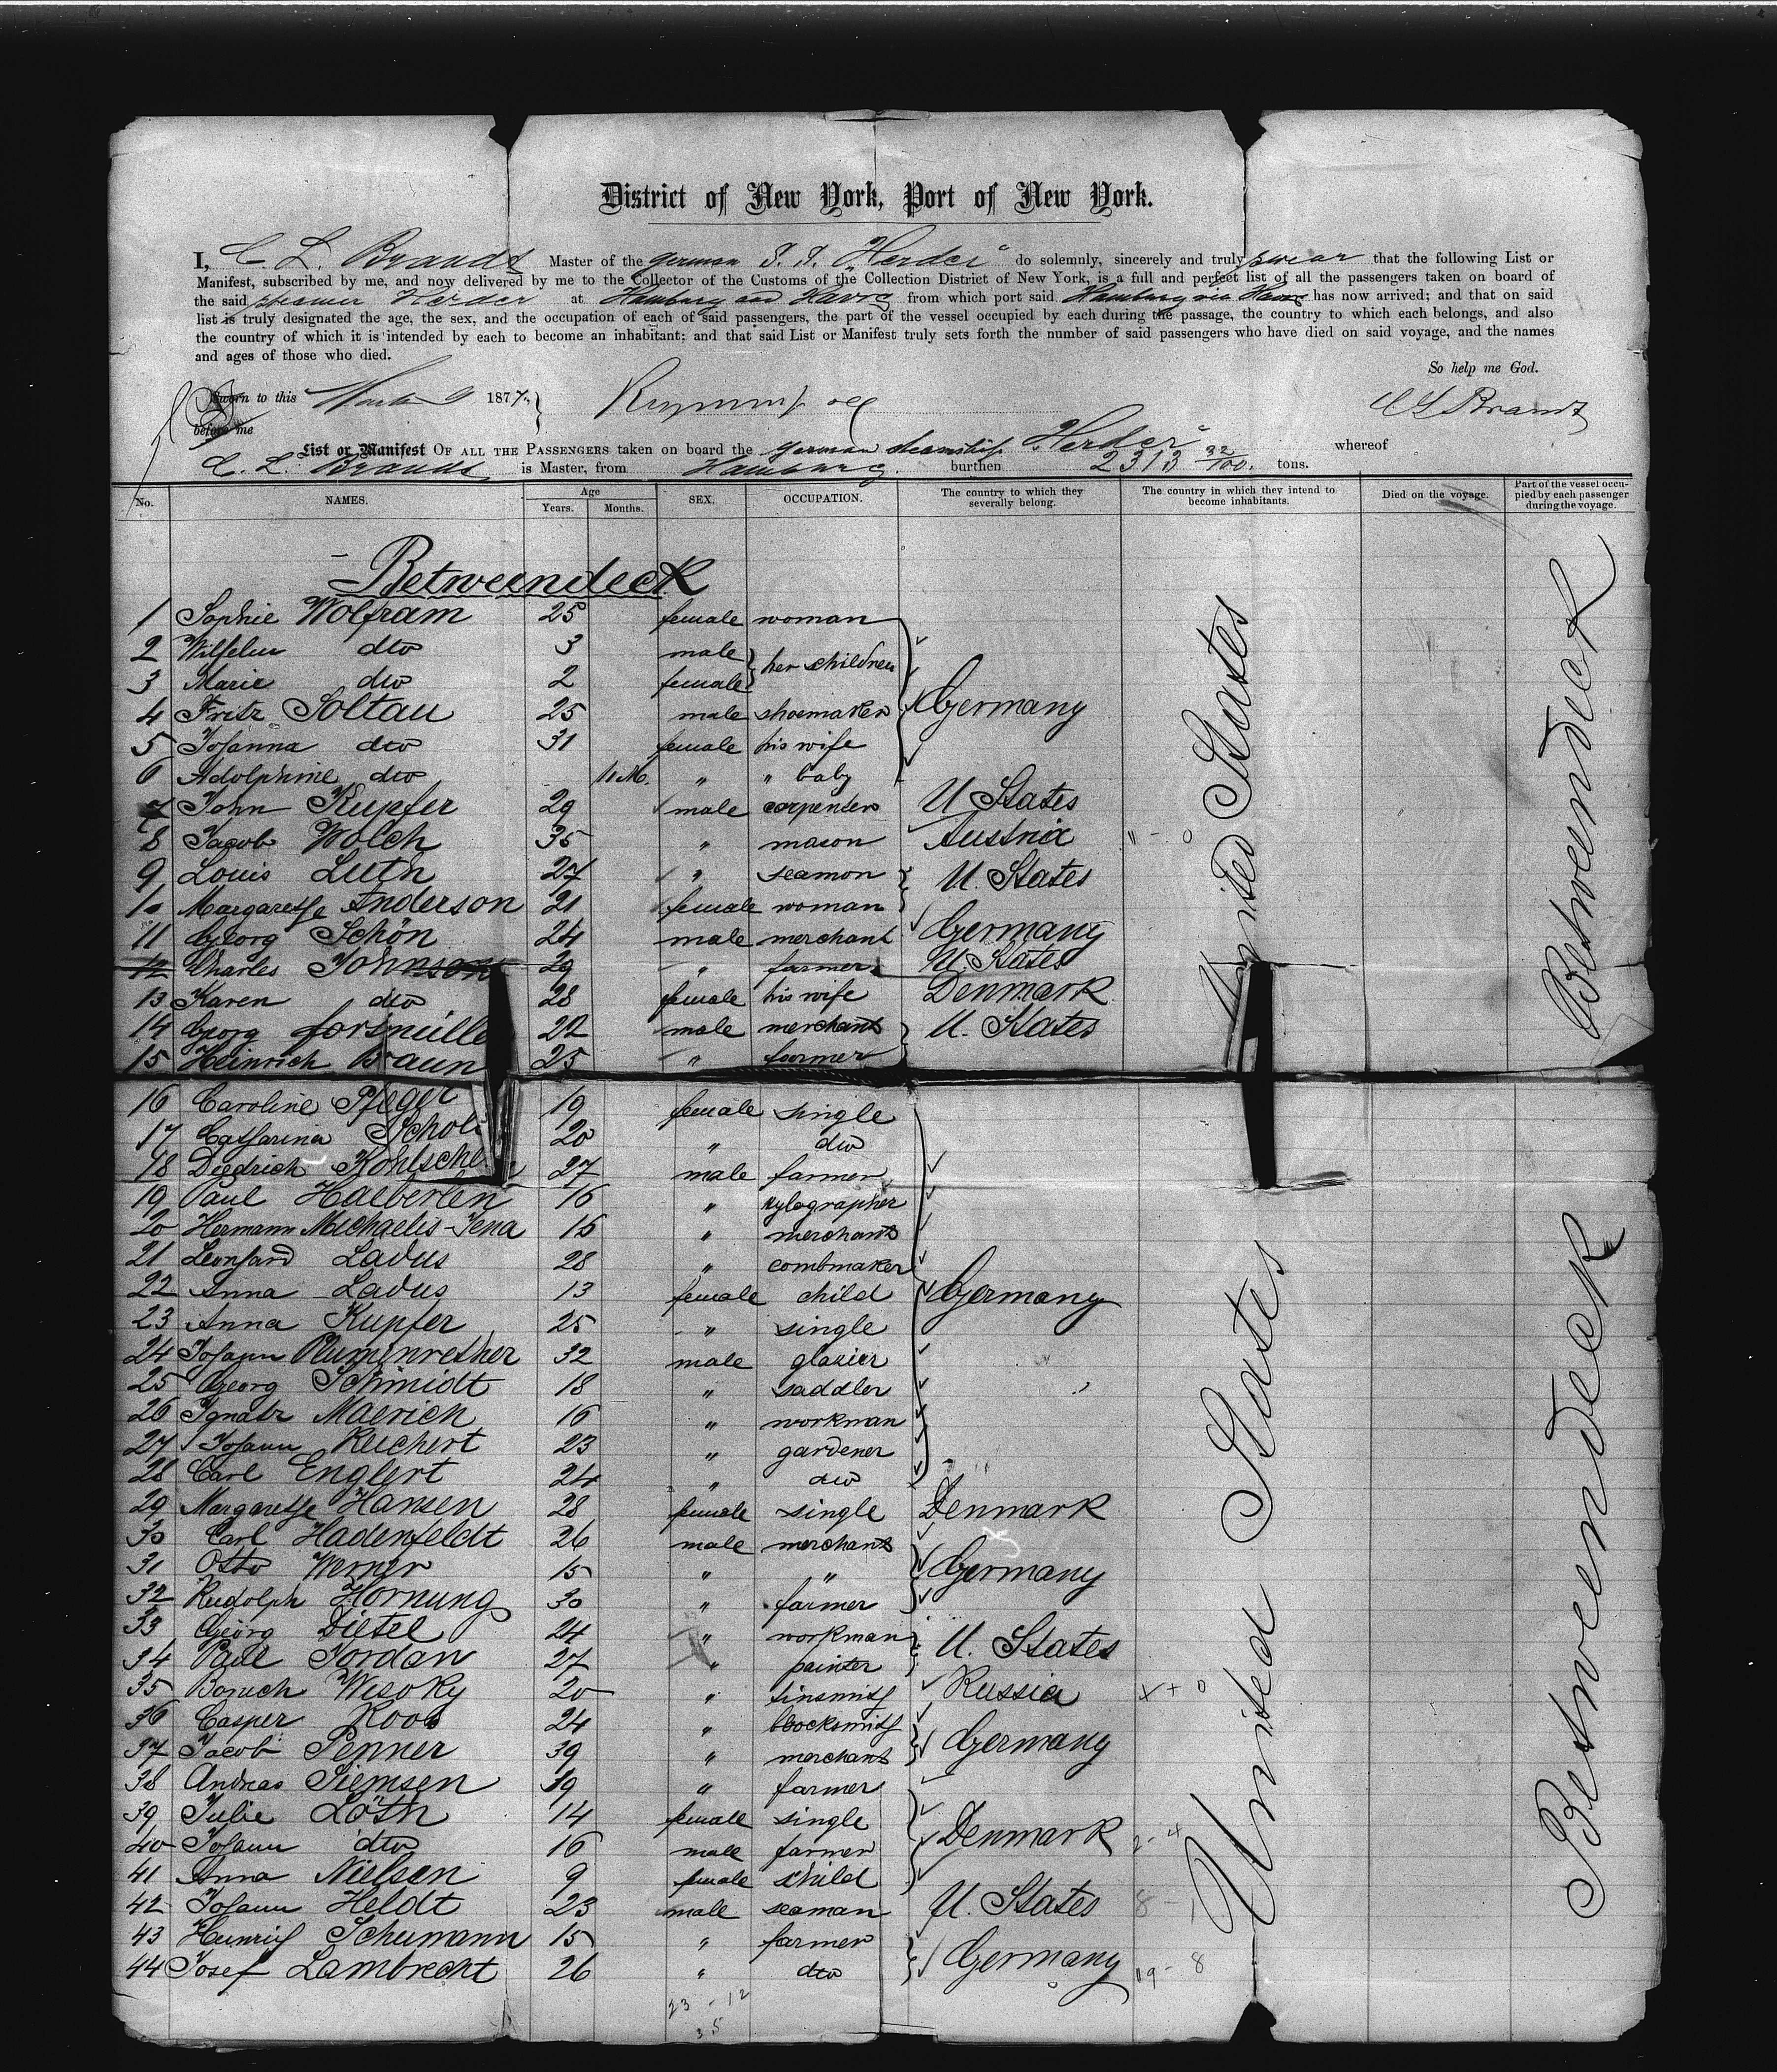 District of New York, Port of New York.
I, C. L. Brandt Master of the german S. S. "Herder" do solemnly, sincerely and truly swear that the following List or
Manifest, subscribed by me, and now delivered by me to the Collector of the Customs of the Collection District of New York, is a full and perfect list of all the passengers taken on board of
the said steamer Herder at Hamburg and Havre from which port said Hamburg via Havre has now arrived; and that on said
list is truly designated the age, the sex, and the occupation of each of said passengers, the part of the vessel occupied by each during the passage, the country to which each belongs, and also
the country of which it is intended by each to become an inhabitant; and that said List or Manifest truly sets forth the number of said passengers who have died on said voyage, and the names
and ages of those who died.
So help me God.
Sworn to this March 9 1877 C L Brandt
before me
List or Manifest OF ALL THE PASSENGERS taken on board the german steamship "Herder" whereof
C. L. Brandt is Master, from Hamburg burthen 2313 32/100 tons.
No. NAMES. Age Years. Months. SEX. OCCUPATION. The country to which they severally belong. The country in which they intend to become inhabitants. Died on the voyage. Part of the vessel occupied by each passenger during the voyage.
Betweendeck
1 Sophie Wolfram 25 female woman
2 Wilhelm dto 3 male her children
3 Marie dto 2 female
4 Fritz Soltau 25 male shoemaker Germany
5 Johanna dto 31 female his wife
6 Adolphine dto 10 M. " " baby
7 John Kupfer 29 male carpenter U States
8 Jacob Wolch 35 " mason Austria
9 Louis Luth 27 " seamon U. States
10 Margarethe Anderson 21 female woman
11 Georg Schön 24 male merchant Germany
12 Charles Johnson 29 " farmer U. States
13 Karen dto 28 female his wife Denmark
14 Georg 22 male merchant U. States
15 Heinrich Braun 25 " farmer
16 Caroline Pfleger 19 female single
17 Catharina 20 " dto
18 Diedrich 27 male farmer
19 Paul Haeberlen 16 " xylographer
20 Hermann Michaelis-Jena 15 " merchant
21 Leonhard Ladus 28 " combmaker
22 Anna Ladus 13 female child Germany
23 Anna Kupfer 25 " single
24 Johann 32 male glazier
25 Georg Schmidt 18 " saddler
26 Ignatz Maerich 16 " workman
27 Johann Reichert 23 " gardener
28 Carl Englert 24 " dto
29 Margarethe Hansen 28 female single Denmark
30 Carl Hadenfeldt 26 male merchant
31 Otto Werner 15 " " Germany
32 Rudolph Hornung 30 " farmer
33 Georg Dietel 24 " workman U. States
34 Paul Jordan 27 " painter
35 Boruch Wisoky 20 " tinsmith Russia
36 Casper Koob 24 " blocksmith
37 Jacob Penner 39 " merchant Germany
38 Andreas Siemsen 19 " farmer
39 Julie Löth 14 female single
40 Johann dto 16 male farmer Denmark
41 Anna Nielsen 9 female child
42 Johann Heldt 23 male seaman U. States
43 Heinrich Schumann 15 " farmer
44 Josef Lambrecht 26 " dto Germany
United States
United States
Betweendeck
Betweendeck
2-4
19-8
23-12
35